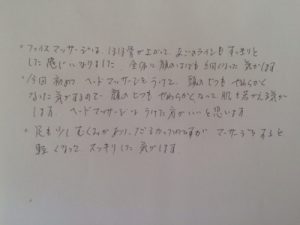 ・フェイスマッサージは、ほほ骨が上がって、あごのラインもすっきりと
した感じになりました。全体に顔のはばも細くなった気がします
・今回初めて、ヘッドマッサージをうけて、頭のてつもやわらかく
なった気がするので、顔のも やわらかくなって、肌も若がえる気が
します。ヘッドマッサージはうけた方がいいと思います
・足も少しむくみがあり、だるかったのですが マッサージをすると
軽くなって、スッキリした気がします。